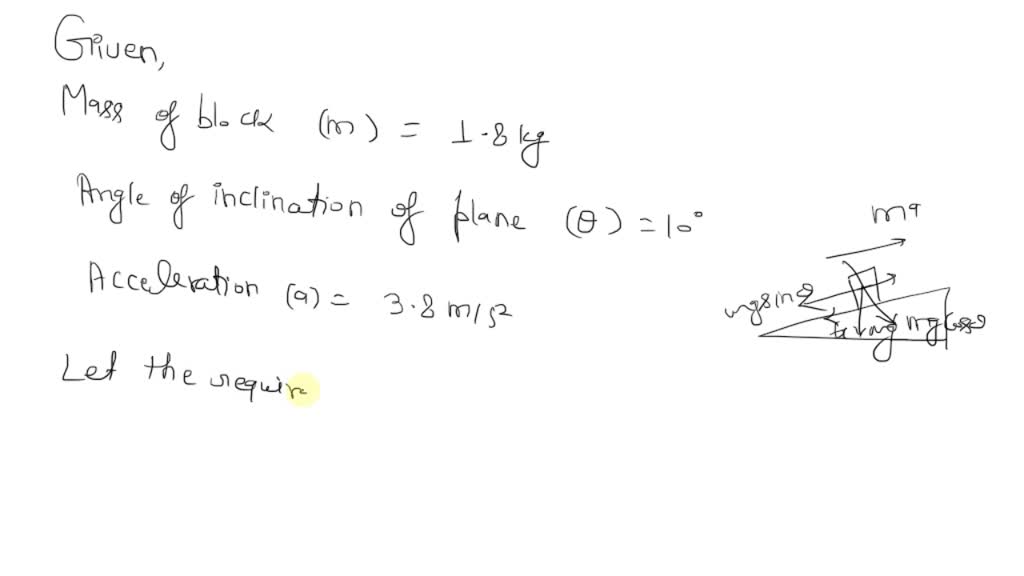 Given,
Mass of block (m) = 1.8 kg
Angle of inclination of plane (θ) = 10°
Acceleration (a) = 3.8 m/s²
Let the require
ma
mg sin θ
mg
mg cos θ